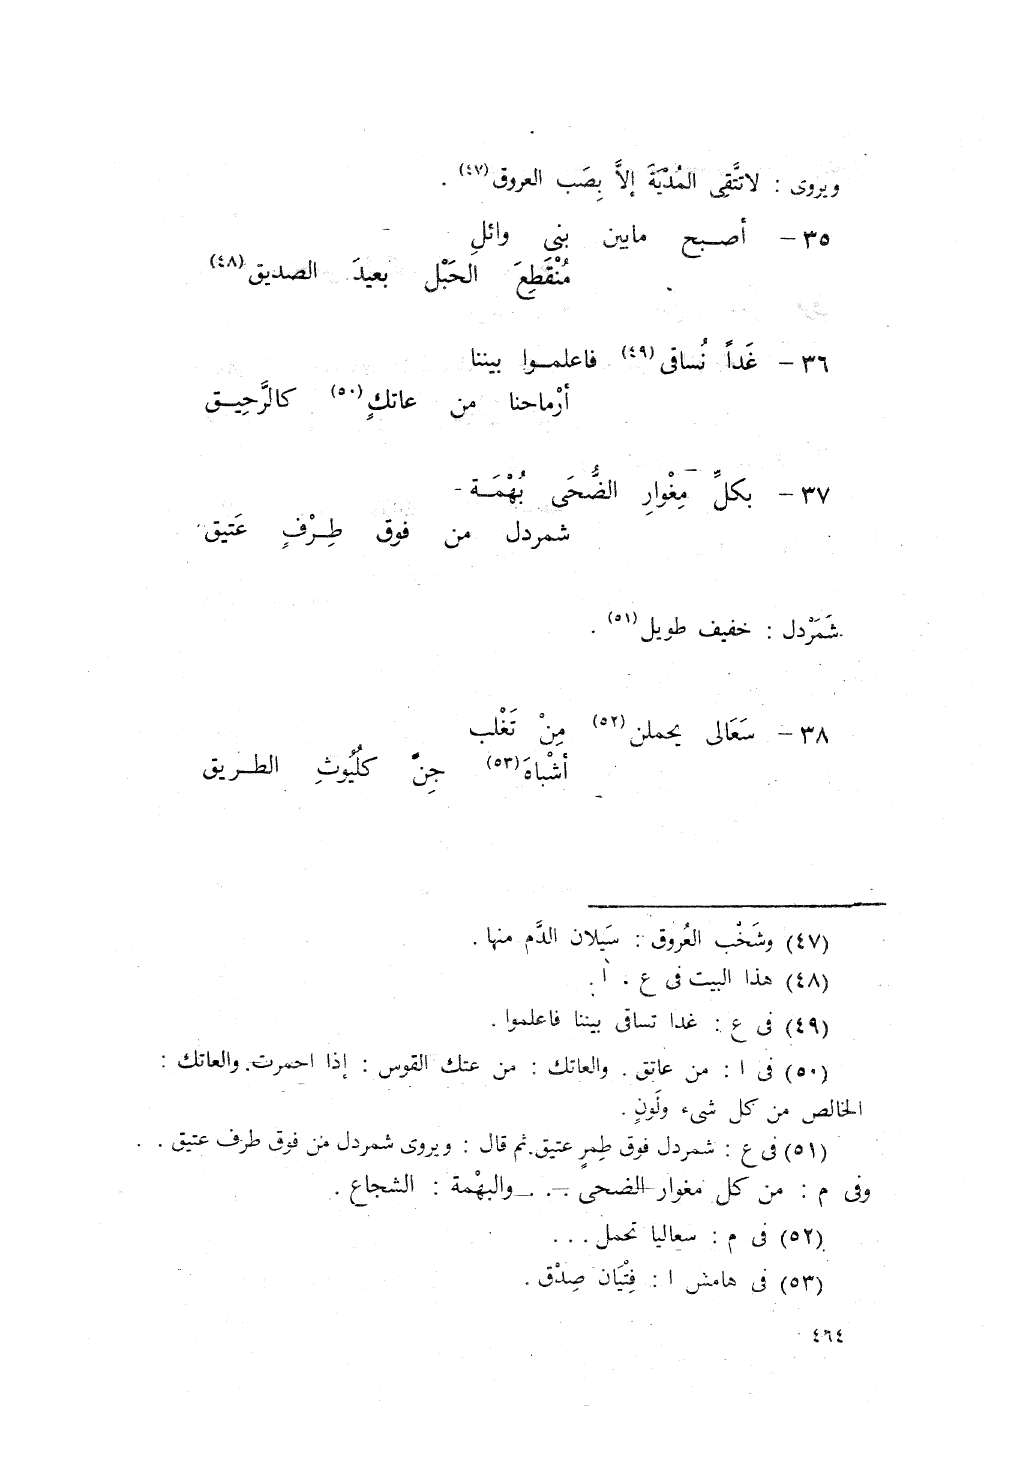 ويروى : لاتتَّقِى المُدْيَةَ إلاَّ بِصَب العروق(٤٧) .
٣٥ – أصبح مابين بنى وائلِ
مُنْقَطِعَ الحَبْل بعيدَ الصديق(٤٨)
٣٦ – غَداً نُساقى(٤٩) فاعلموا بيننا
أرْماحنا من عاتكٍ(٥٠) كالرَّحِيق
٣٧ – بكلِّ مِغْوارِ الضُّحَى بُهْمَة
شمردل من فوق طِرْفٍ عَتيق
شَمَرْدل : خفيف طويل(٥١) .
٣٨ – سَعَالى يحملن(٥٢) مِنْ تَغْلب
أشْباهَ(٥٣) جِنّ كلُيُوثِ الطريق
(٤٧) وشَخْب العُروق : سَيلان الدَّم منها .
(٤٨) هذا البيت فى ع . أ .
(٤٩) فى ع : غدا تساقى بيننا فاعلموا .
(٥٠) فى ا : من عاتق . والعاتك : من عتك القوس : إذا احمرت. والعاتك :
الخالص من كل شىء ولَونٍ .
(٥١) فى ع : شمردل فوق طِمرٍ عتيق. ثم قال : ويروى شمردل من فوق طرف عتيق . .
وفى م : من كل مغوار الضحى . . . والبهْمة : الشجاع .
(٥٢) فى م : سعاليا تحمل . . .
(٥٣) فى هامش ا : فِتْيَان صِدْق .
٤٦٤